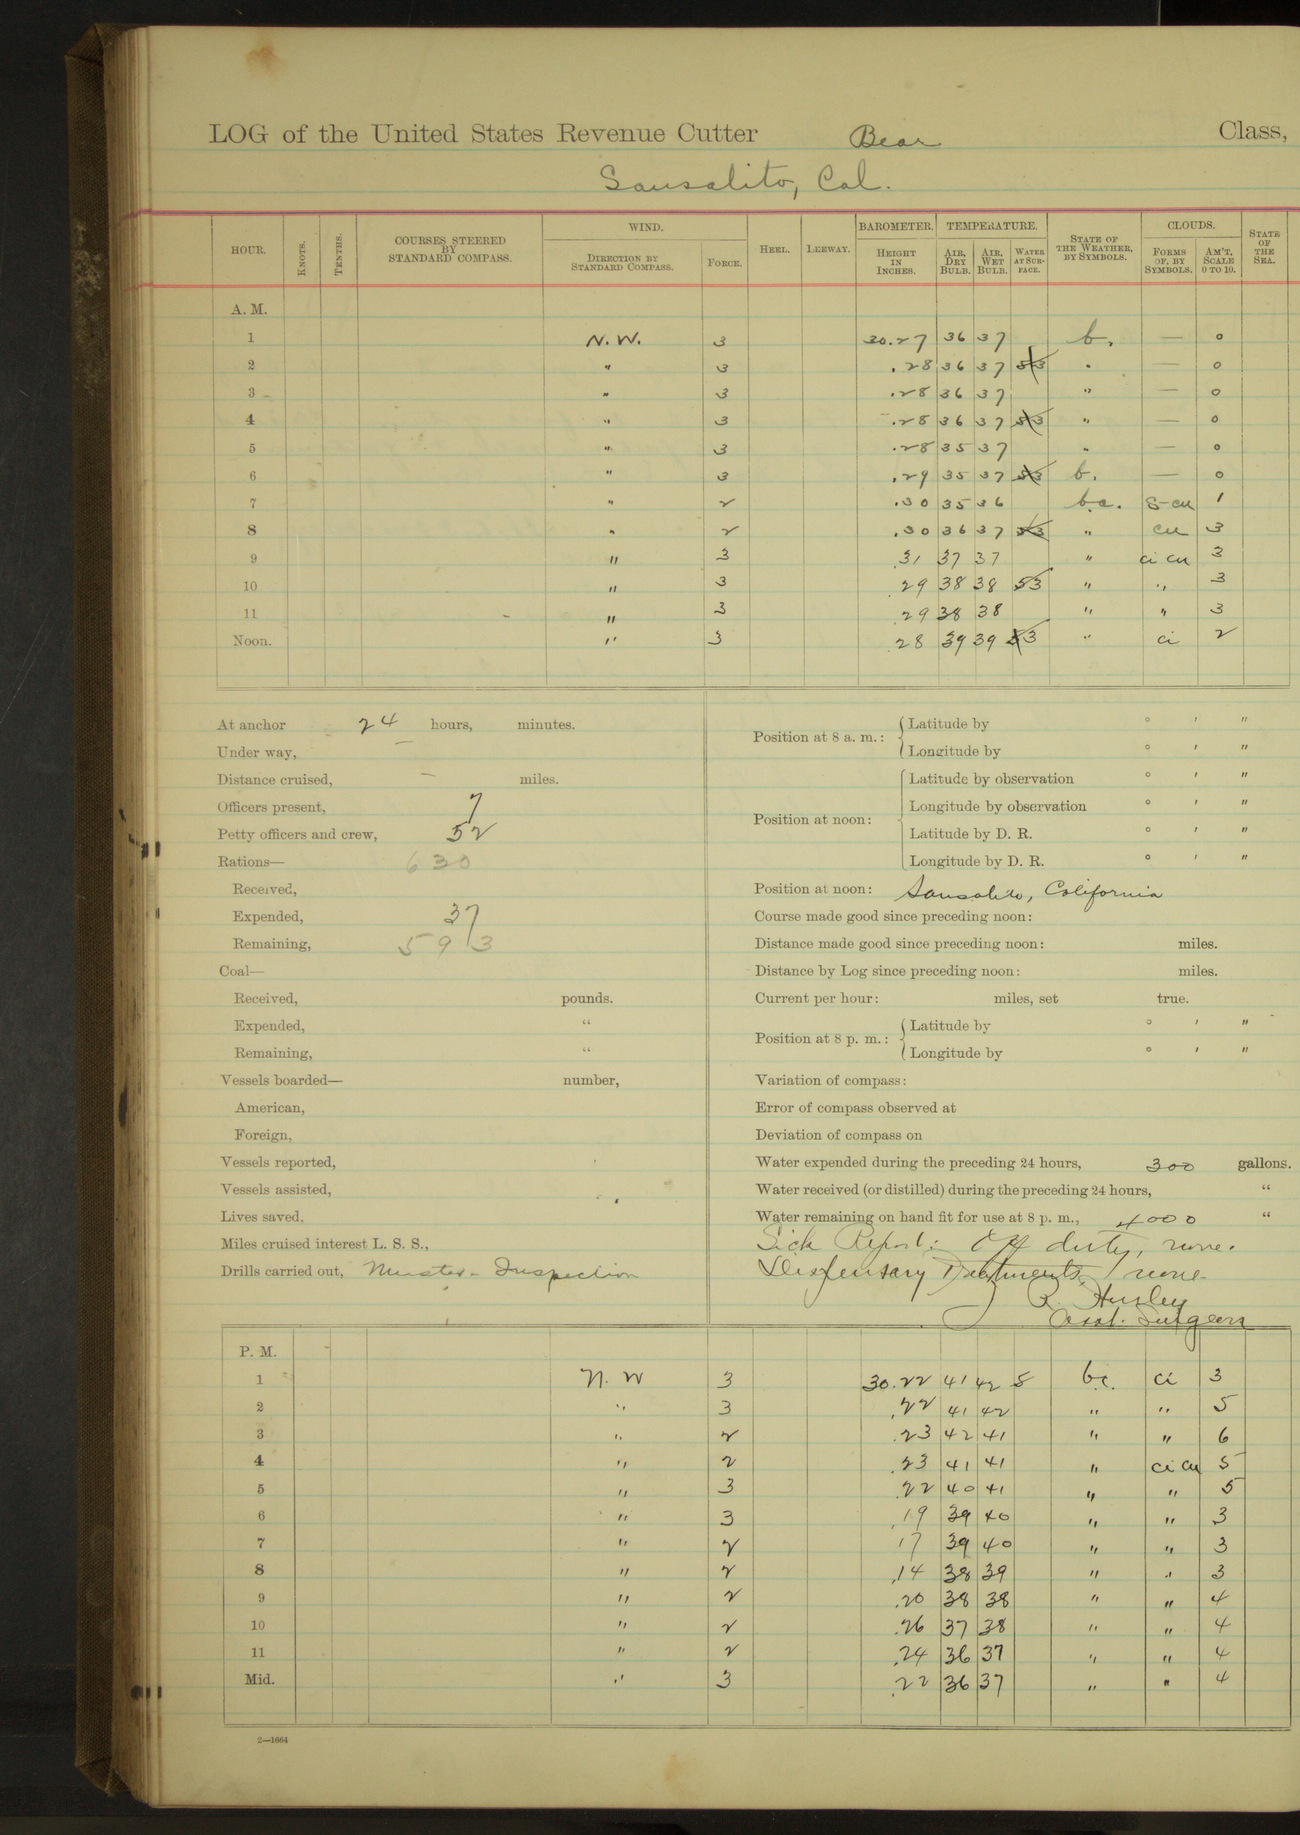 LOG of the United States Revenue Cutter Bear Class,
Sausalito, Cal.
HOUR. KNOTS. TENTHS. COURSES STEERED BY STANDARD COMPASS. WIND. DIRECTION BY STANDARD COMPASS. FORCE. HEEL. LEEWAY. BAROMETER. HEIGHT IN INCHES. TEMPERATURE. AIR, DRY BULB. AIR, WET BULB. WATER AT SURFACE. STATE OF THE WEATHER, BY SYMBOLS. CLOUDS. FORMS OF, BY SYMBOLS. AM'T, SCALE 0 TO 10. STATE OF THE SEA.
A. M.
1 N.W. 3 30.27 36 37 b. — 0
2 " 3 .28 36 37 53 " — 0
3 " 3 .28 36 37 " — 0
4 " 3 .28 36 37 53 " — 0
5 " 3 .28 35 37 " — 0
6 " 3 .29 35 37 53 b. — 0
7 " 2 .30 35 36 b.c. S-cu 1
8 " 2 .30 36 37 53 " cu 3
9 " 3 .31 37 37 " ci cu 3
10 " 3 .29 38 38 53 " " 3
11 " 3 .29 38 38 " " 3
Noon. " 3 .28 39 39 53 " ci 2
At anchor 24 hours, minutes.
Under way, —
Distance cruised, — miles.
Officers present, 7
Petty officers and crew, 52
Rations— 630
Received,
Expended, 37
Remaining, 593
Coal—
Received, pounds.
Expended, "
Remaining, "
Vessels boarded— number,
American,
Foreign,
Vessels reported,
Vessels assisted,
Lives saved,
Miles cruised interest L. S. S.,
Drills carried out, Muster - Inspection
Position at 8 a. m.: Latitude by ° ′ ″
Longitude by ° ′ ″
Position at noon: Latitude by observation ° ′ ″
Longitude by observation ° ′ ″
Latitude by D. R. ° ′ ″
Longitude by D. R. ° ′ ″
Position at noon: Sausalito, California
Course made good since preceding noon:
Distance made good since preceding noon: miles.
Distance by Log since preceding noon: miles.
Current per hour: miles, set true.
Position at 8 p. m.: Latitude by ° ′ ″
Longitude by ° ′ ″
Variation of compass:
Error of compass observed at
Deviation of compass on
Water expended during the preceding 24 hours, 300 gallons.
Water received (or distilled) during the preceding 24 hours, "
Water remaining on hand fit for use at 8 p. m., 4000 "
Sick Report: Off duty, none.
Dispensary Treatments, none.
Asst. Surgeon
P. M.
1 N. W 3 30.22 41 42 b.c. ci 3
2 " 3 .22 41 42 " " 5
3 " 2 .23 42 41 " " 6
4 " 2 .23 41 41 " ci cu 5
5 " 3 .22 40 41 " " 5
6 " 3 .19 39 40 " " 3
7 " 2 .17 39 40 " " 3
8 " 2 .14 38 39 " " 3
9 " 2 .20 38 38 " " 4
10 " 2 .26 37 38 " " 4
11 " 2 .24 36 37 " " 4
Mid. " 3 .22 36 37 " " 4
2—1664